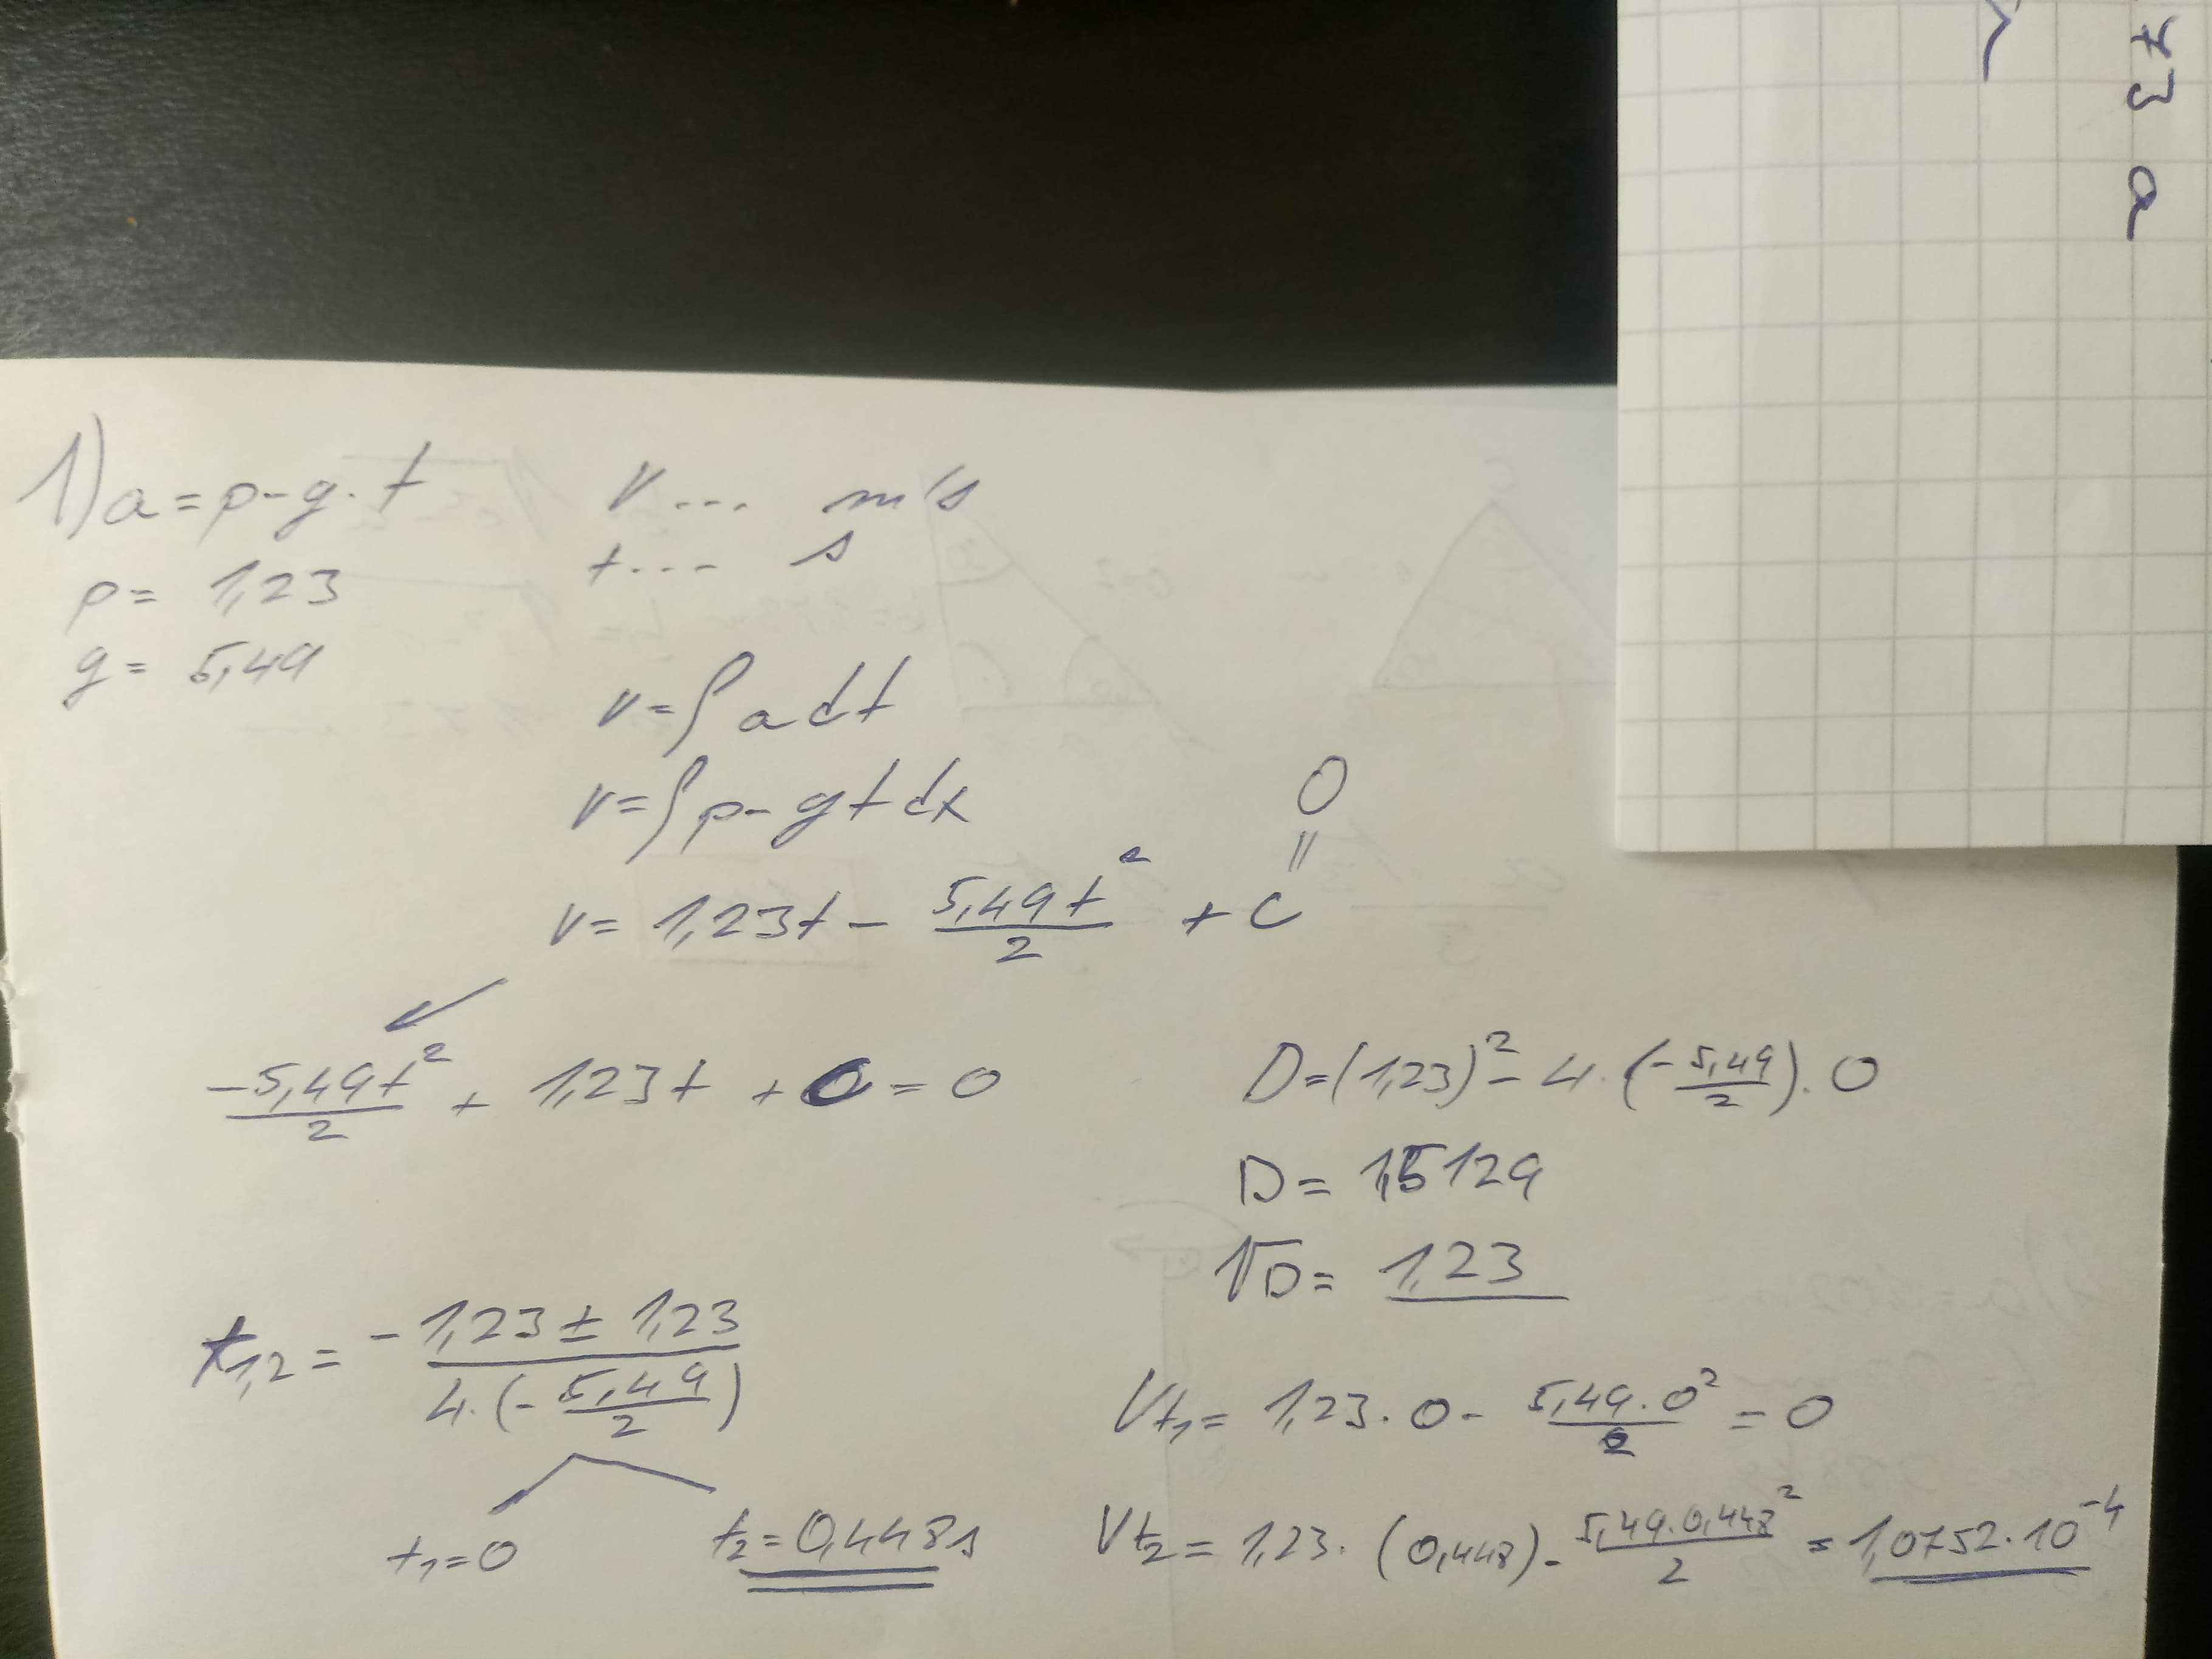 1) a = p - g. t
p = 1,23
g = 5,49
v... m/s
t... s
v = ∫ a dt
v = ∫ p - g t dx
0
||
v = 1,23t - 5,49t²/2 + C
-5,49t²/2 + 1,23t + 0 = 0
D = (1,23)² - 4. (-5,49/2). 0
D = 1,5129
√D = 1,23
t1,2 = -1,23 ± 1,23 / 4. (-5,49/2)
t1 = 0
t2 = 0,448s
Vt1 = 1,23. 0 - 5,49. 0²/2 = 0
Vt2 = 1,23. (0,448) - 5,49. 0,448²/2 = 1,0752. 10⁻⁴
73 a